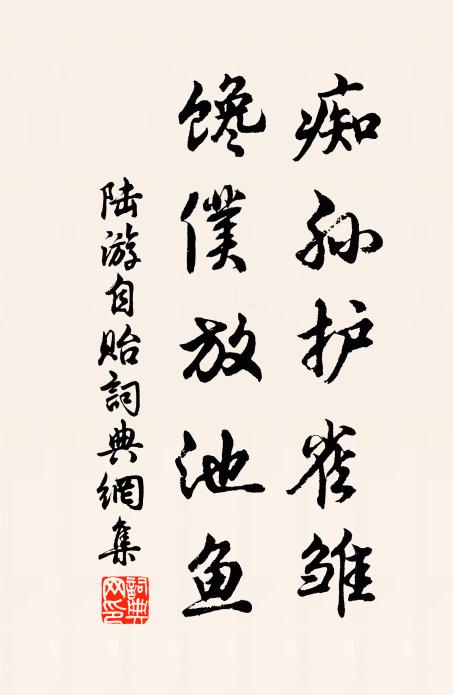 痴孙护雀雏
馋僕放池鱼
陆游自贻詞典網集
詞典网印